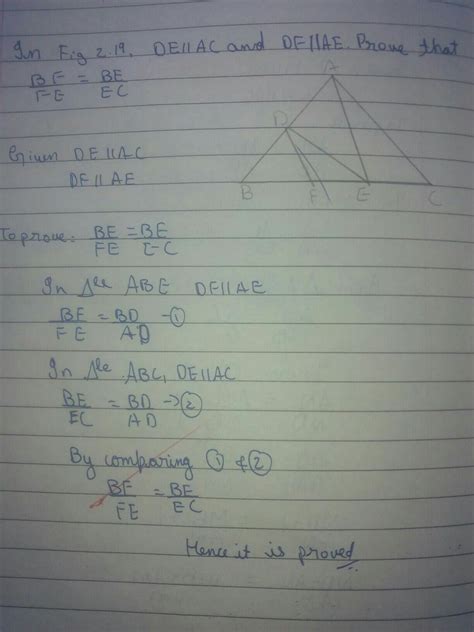 In Fig 2.19. DE||AC and DF||AE. Prove that
BF/FE = BE/EC
A
D
B F E C
Given DE||AC
DE||AE
To prove: BE/FE = BE/EC
In Δle ABE DE||AE
BF/FE = BD/AD -①
In Δle ABC, DE||AC
BE/EC = BD/AD →②
By comparing ① & ②
BF/FE = BE/EC
Hence it is proved